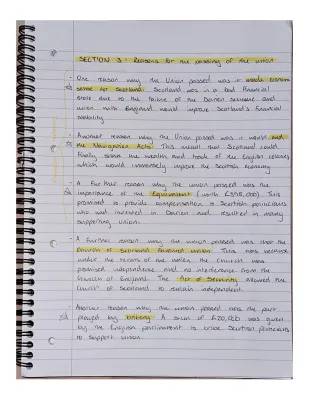 SECTION 3: Reasons for the passing of the union
- One reason why the Union passed was it made economic
sense for Scotland. Scotland was in a bad financial
state due to the failure of the Darien scheme and
union with England would improve Scotland's financial
stability.
- Another reason why the Union passed was it would end
the Navigation Acts. This meant that Scotland could
finally share the wealth and trade of the English colonies
which would immensely improve the Scottish economy.
- A further reason why the union passed was the
importance of the Equivalent (worth £398,000). This
promised to provide compensation to Scottish politicians
who had invested in Darien and resulted in many
supporting union.
- A further reason why the union passed was that the
Church of Scotland favoured union. This was because
under the terms of the union the Church was
promised independence and no interference from the
Church of England. The Act of Security allowed the
Church of Scotland to remain independent.
- Another reason why the union passed was the part
played by bribery. A sum of £20,000 was given
by the English parliament to bribe Scottish politicians
to support union.